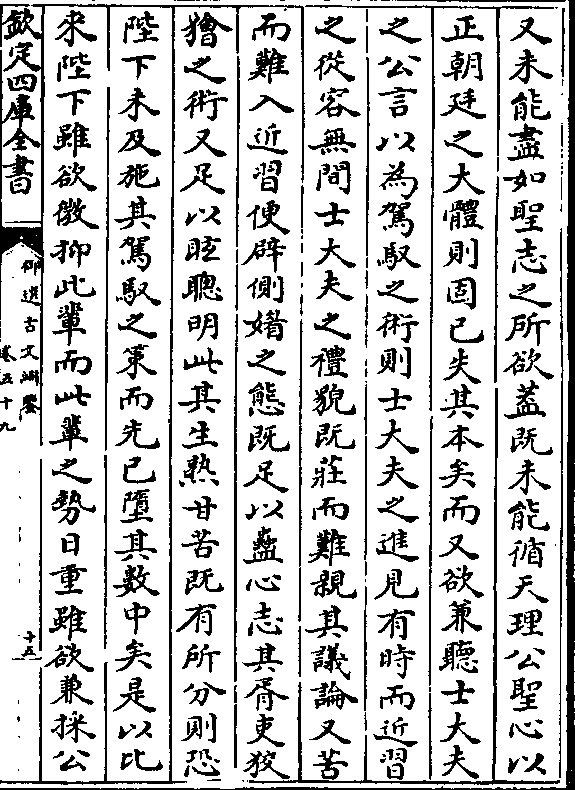 又未能盡如聖志之所欲蓋既未能循天理公聖心以
正朝廷之大體則固已失其本矣而又欲兼聽士大夫
之公言以為駕馭之術則士大夫之進見有時而近習
之從容無間士大夫之禮貌既莊而難親其議論又苦
而難入近習便辟側媚之態既足以蠱心志其胥吏狡
獪之術又足以眩聰明此其生熟甘苦既有所分則恐
陛下未及施其駕馭之策而先已墮其數中矣是以比
來陛下雖欲微抑此輩而此輩之勢日重雖欲兼採公
欽定四庫全書
御選古文淵鑒
卷五十九
十五